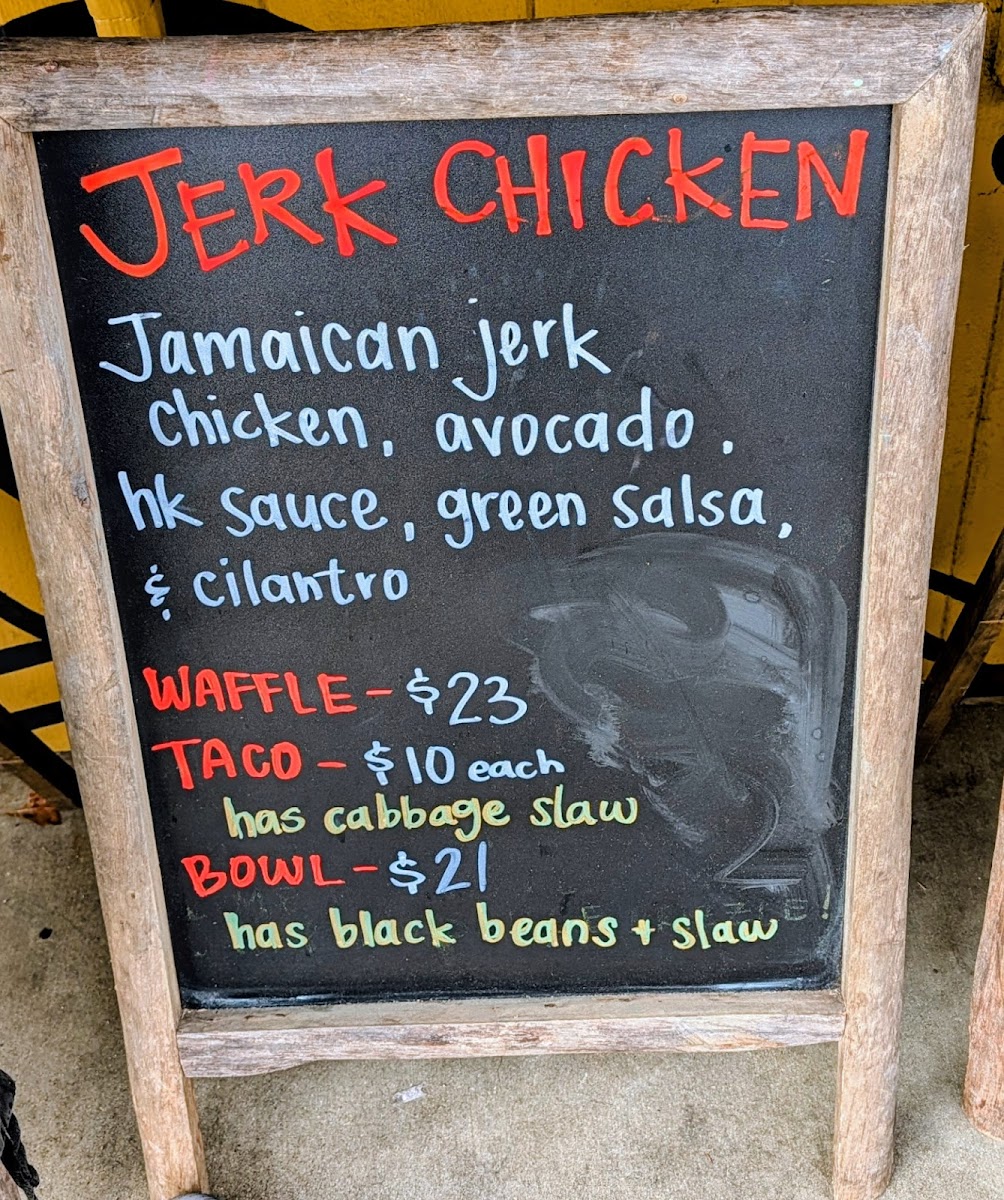 JERK CHICKEN
Jamaican jerk
chicken, avocado,
hk sauce, green salsa,
& cilantro
WAFFLE - $23
TACO - $10 each
has cabbage slaw
BOWL - $21
has black beans + slaw